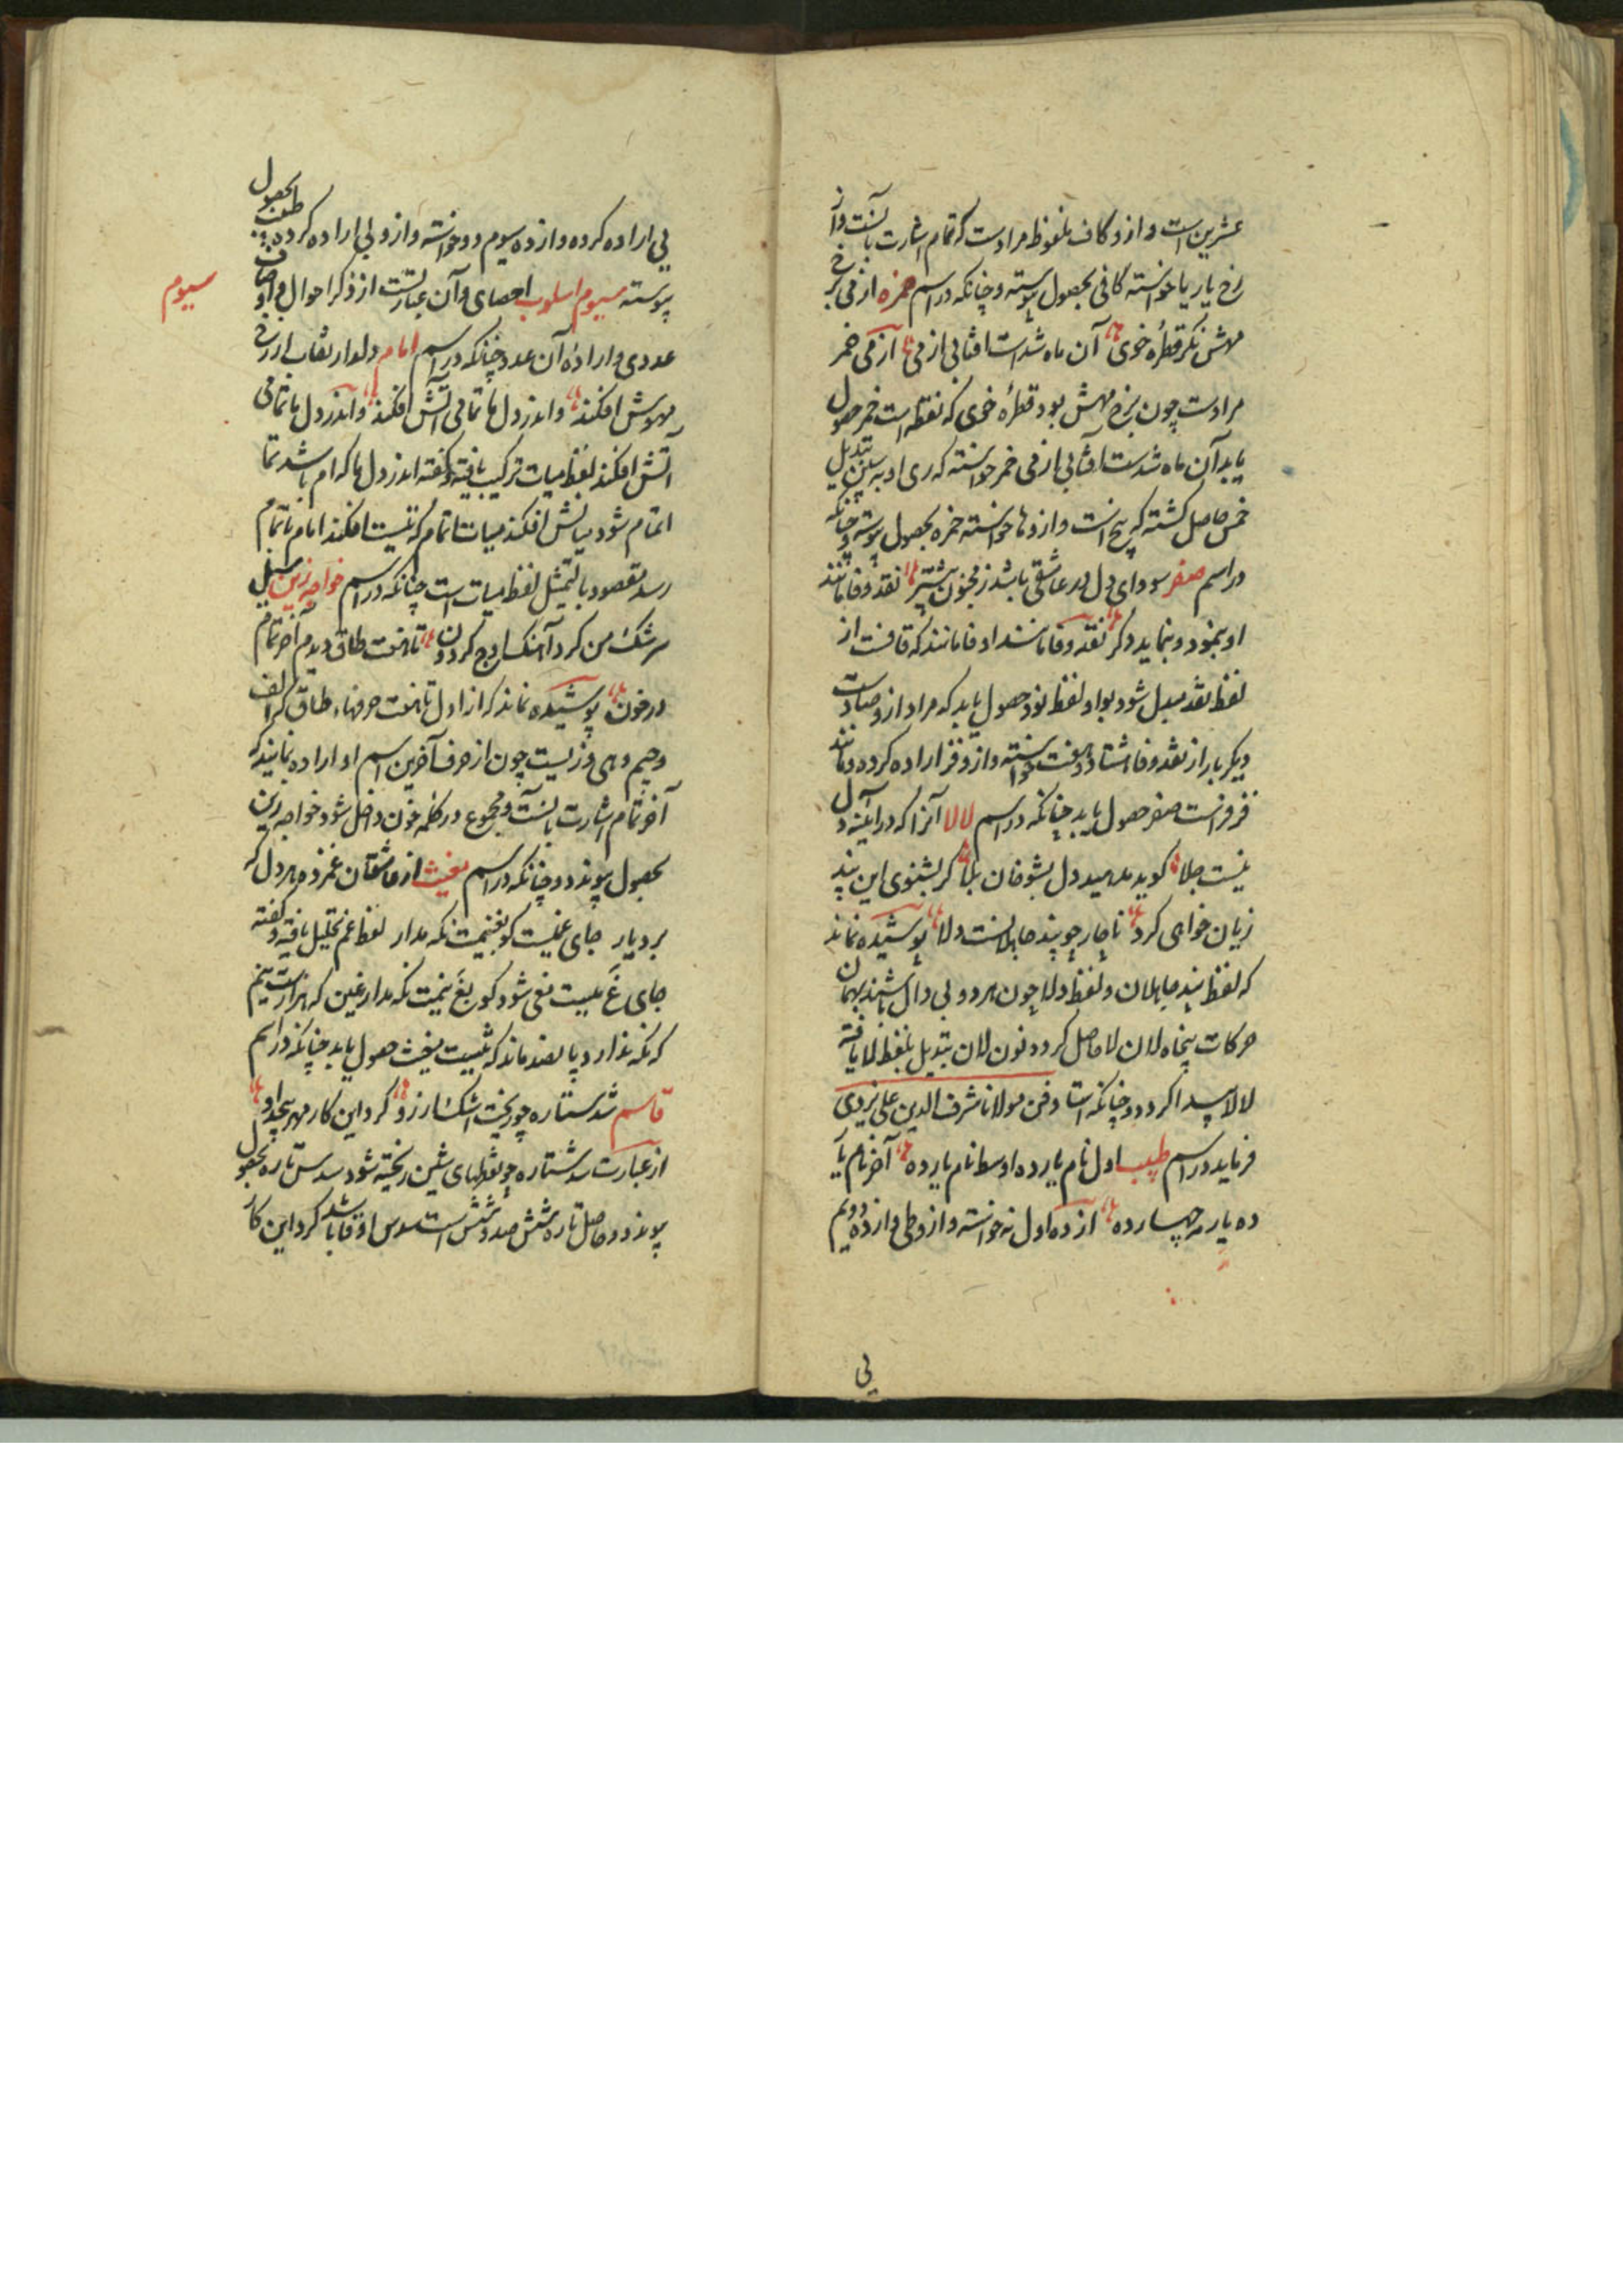 عشرین است و ازو کاف ملفوظ مرادست که تمام اشارت بآنست و از
رخ یار یا خواسته کافی بحصول پیوسته و چنانکه در اسم حمزه از می بر رخ
مهش نکر قطره خوی آن ماه شدست افتابی از می از می خمر
مرادست چون برخ مهش بود قطره خوی که نقطه است خمر حصول
یابد آن ماه شدست آفتابی از می خمر خواسته که ری او به سین تبدیل
خمس حاصل کشته که پنج است و ازو ها خواسته حمزه بحصول پیوسته و چنانکه
در اسم صفر سودای دل هر عاشقی باشد ز مجنون بیشتر نقد وفا مانند
او بنمود و بنماید دکر نقد وفا مانند او فا مانند که قافست از
لفظ نقد مبدل شود بواو لفظ نود حصول یابد که مراد ازو صادست
دیکر بار از نقد وفا هشتاد و هفت خواسته و ازو فز اراده کرده و مانند
فز فرانست صفر حصول یابد چنانکه در اسم لالا آنرا که در آینه دل
نیست جلا کوید مدهید دل بشوخان بلا کر بشنوی این پند
زیان خواهی کرد ناچار چو پند جاهلانست دلا پوشیده نماند
که لفظ پند جاهلان و لفظ دلا چون هر دو بی دال باشند بهمان
حرکات پنجاه لان لا حاصل کردد نون لان تبدیل بلفظ لا یافته
لالا پیدا کردد و چنانکه استاد فن مولانا شرف الدین علی یزدی
فرماید در اسم طبیب اول نام یار ده اوسط نام یار ده آخر نام یا
ده یار مه چهارده از ده اول نه خواسته و ازو طی و از ده دویم
بی
بی اراده کرده و از ده سیوم دو خواسته و ازو بی اراده کرده طبیب بحصول
پیوسته سیوم اسلوب احصای و آن عبارتست از ذکر احوال و اوصاف
سیوم
عددی و اراده آن عدد چنانکه در اسم امام دلدار نقاب از رخ
مهوش افکند و اندر دل ما تمامی آتش افکند و اندر دل ما تمامی
آتش افکند لفظ میات ترکیب یافته و کفته اندر دل ما که ام باشد تما
اتمام شود میاتش افکند میات اتمام که تیست افکند امام باتمام
رسد مقصود بالتمثیل لفظ میات است چنانکه در اسم خواجه زین سیل
سرشک من کرد آهنک اوج کردون تا هفت طاق دیدم آخر تمام
در خون پوشیده نماند که از اول تا هفت حرفهاء طاق که الف
و جیم و هی و زیست چون از حرف آخرین اسم او اراده نمایند که
آخر تمام اشارت بآنست و مجموع در کلمه خون داخل شود خواجه زین
بحصول پیوندد و چنانکه در اسم مغیث از عاشقان غمزده هر دل که
برد یار جای غمیست کو بغنیمت نکه مدار لفظ غم تحلیل یافته و کفته
جای غ میست مغی شود کو بغ نیمت نکه مدار غین که هزارست نیم
که نکه ندارد پانصد ماند که ثیست مغیث حصول یابد چنانکه در اسم
قاسم شد ستاره چو ریخت اشک آرزو کرد این کار مهر بیحد او
از عبارت شد ستاره چو نقطهای شین ریخته شود سدس تاره بحصول
پیوندد و حاصل تاره شش صد و شش است سدس او قا باشد کرد این کار